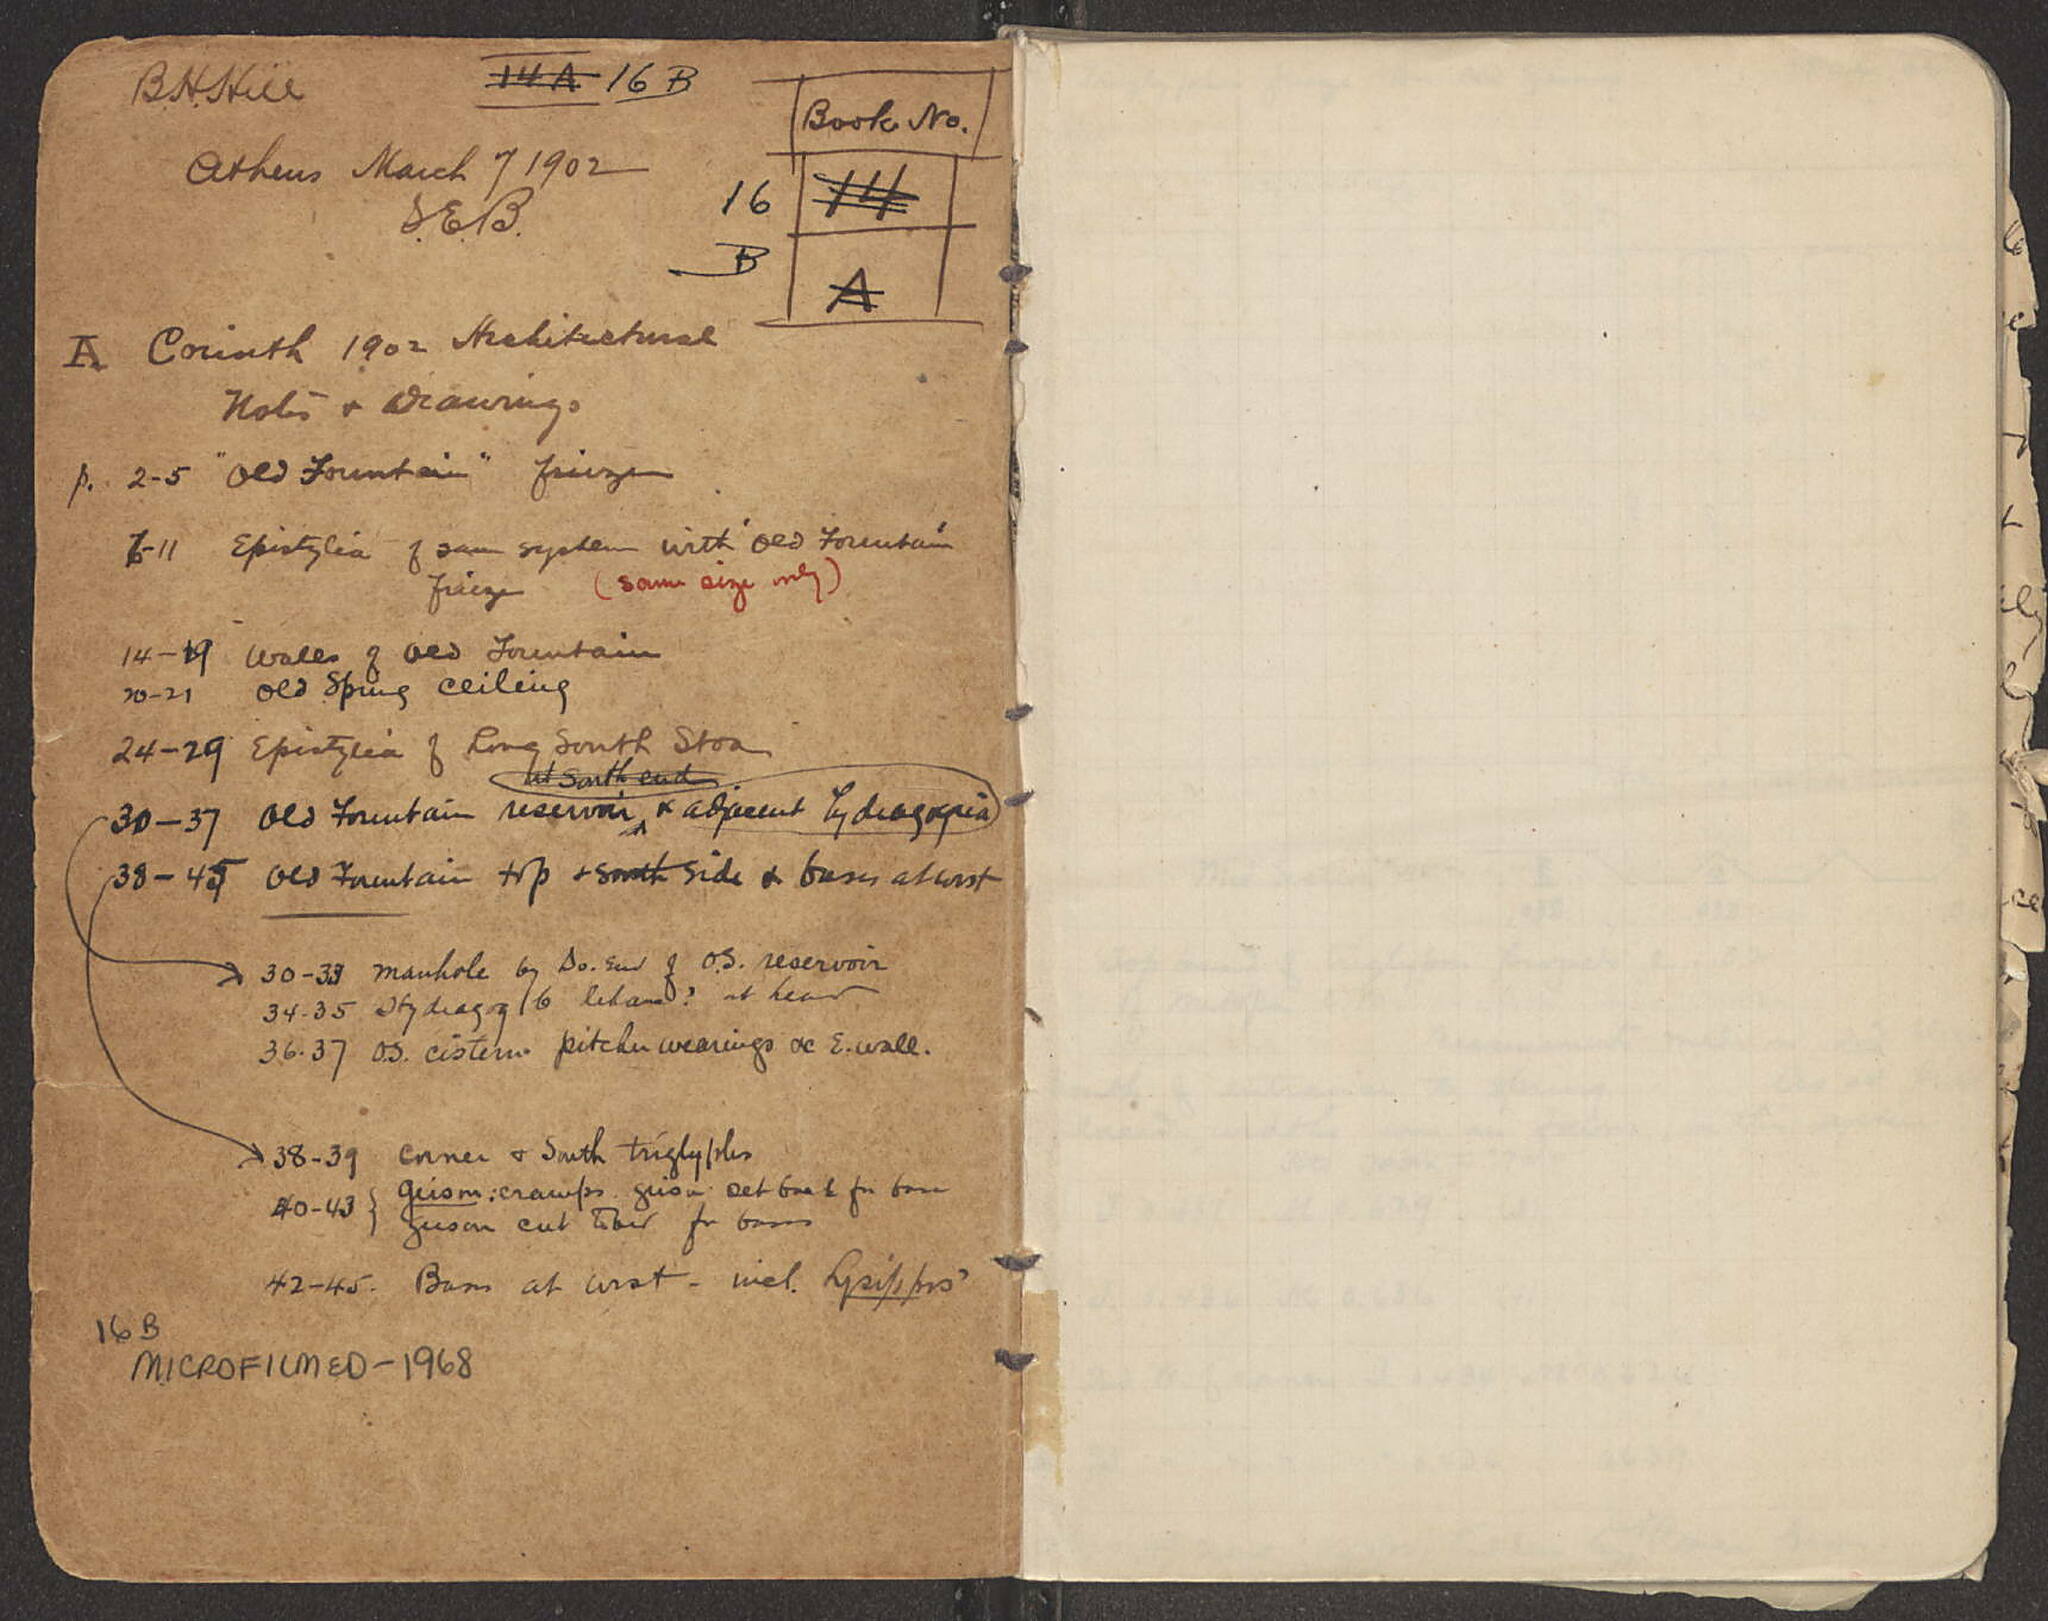 B.H.Hill
14A 16 B
Book No.
Athens March 7 1902
S.E.B.
16 14
B A
A Corinth 1902 Architectural
Notes & Drawings
p. 2-5 "Old Fountain" frieze
6-11 Epistylia of same system with "Old Fountain"
frieze (same size only)
14-19 Walls of Old Fountain
20-21 Old Spring ceiling
24-29 Epistylia of Long South Stoa
at South end
30-37 Old Fountain reservoir & adjacent hydragogeia
38-45 Old Fountain top & South side & bases at west
30-33 manhole by So. end of O.S. reservoir
34-35 Hydragog at head
36-37 O.S. cistern pitcher wearings & E. wall.
38-39 Corner & South triglyphs
40-43 { geison: cramps. geison set back for base
geison cut for bases
42-45. Bases at west - incl. Lysippos'
16 B
MICROFILMED-1968